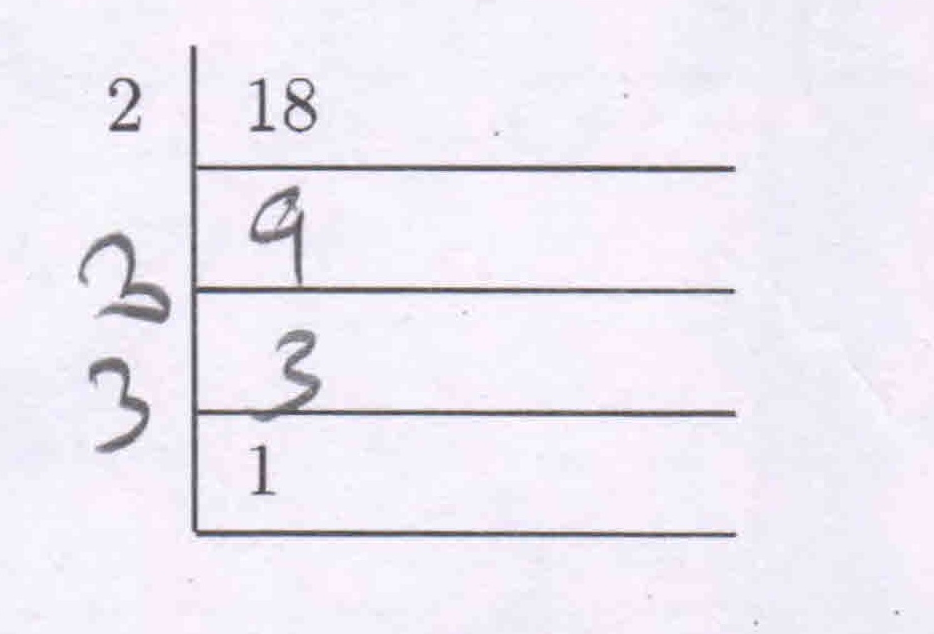 2 18
9
3
3
1